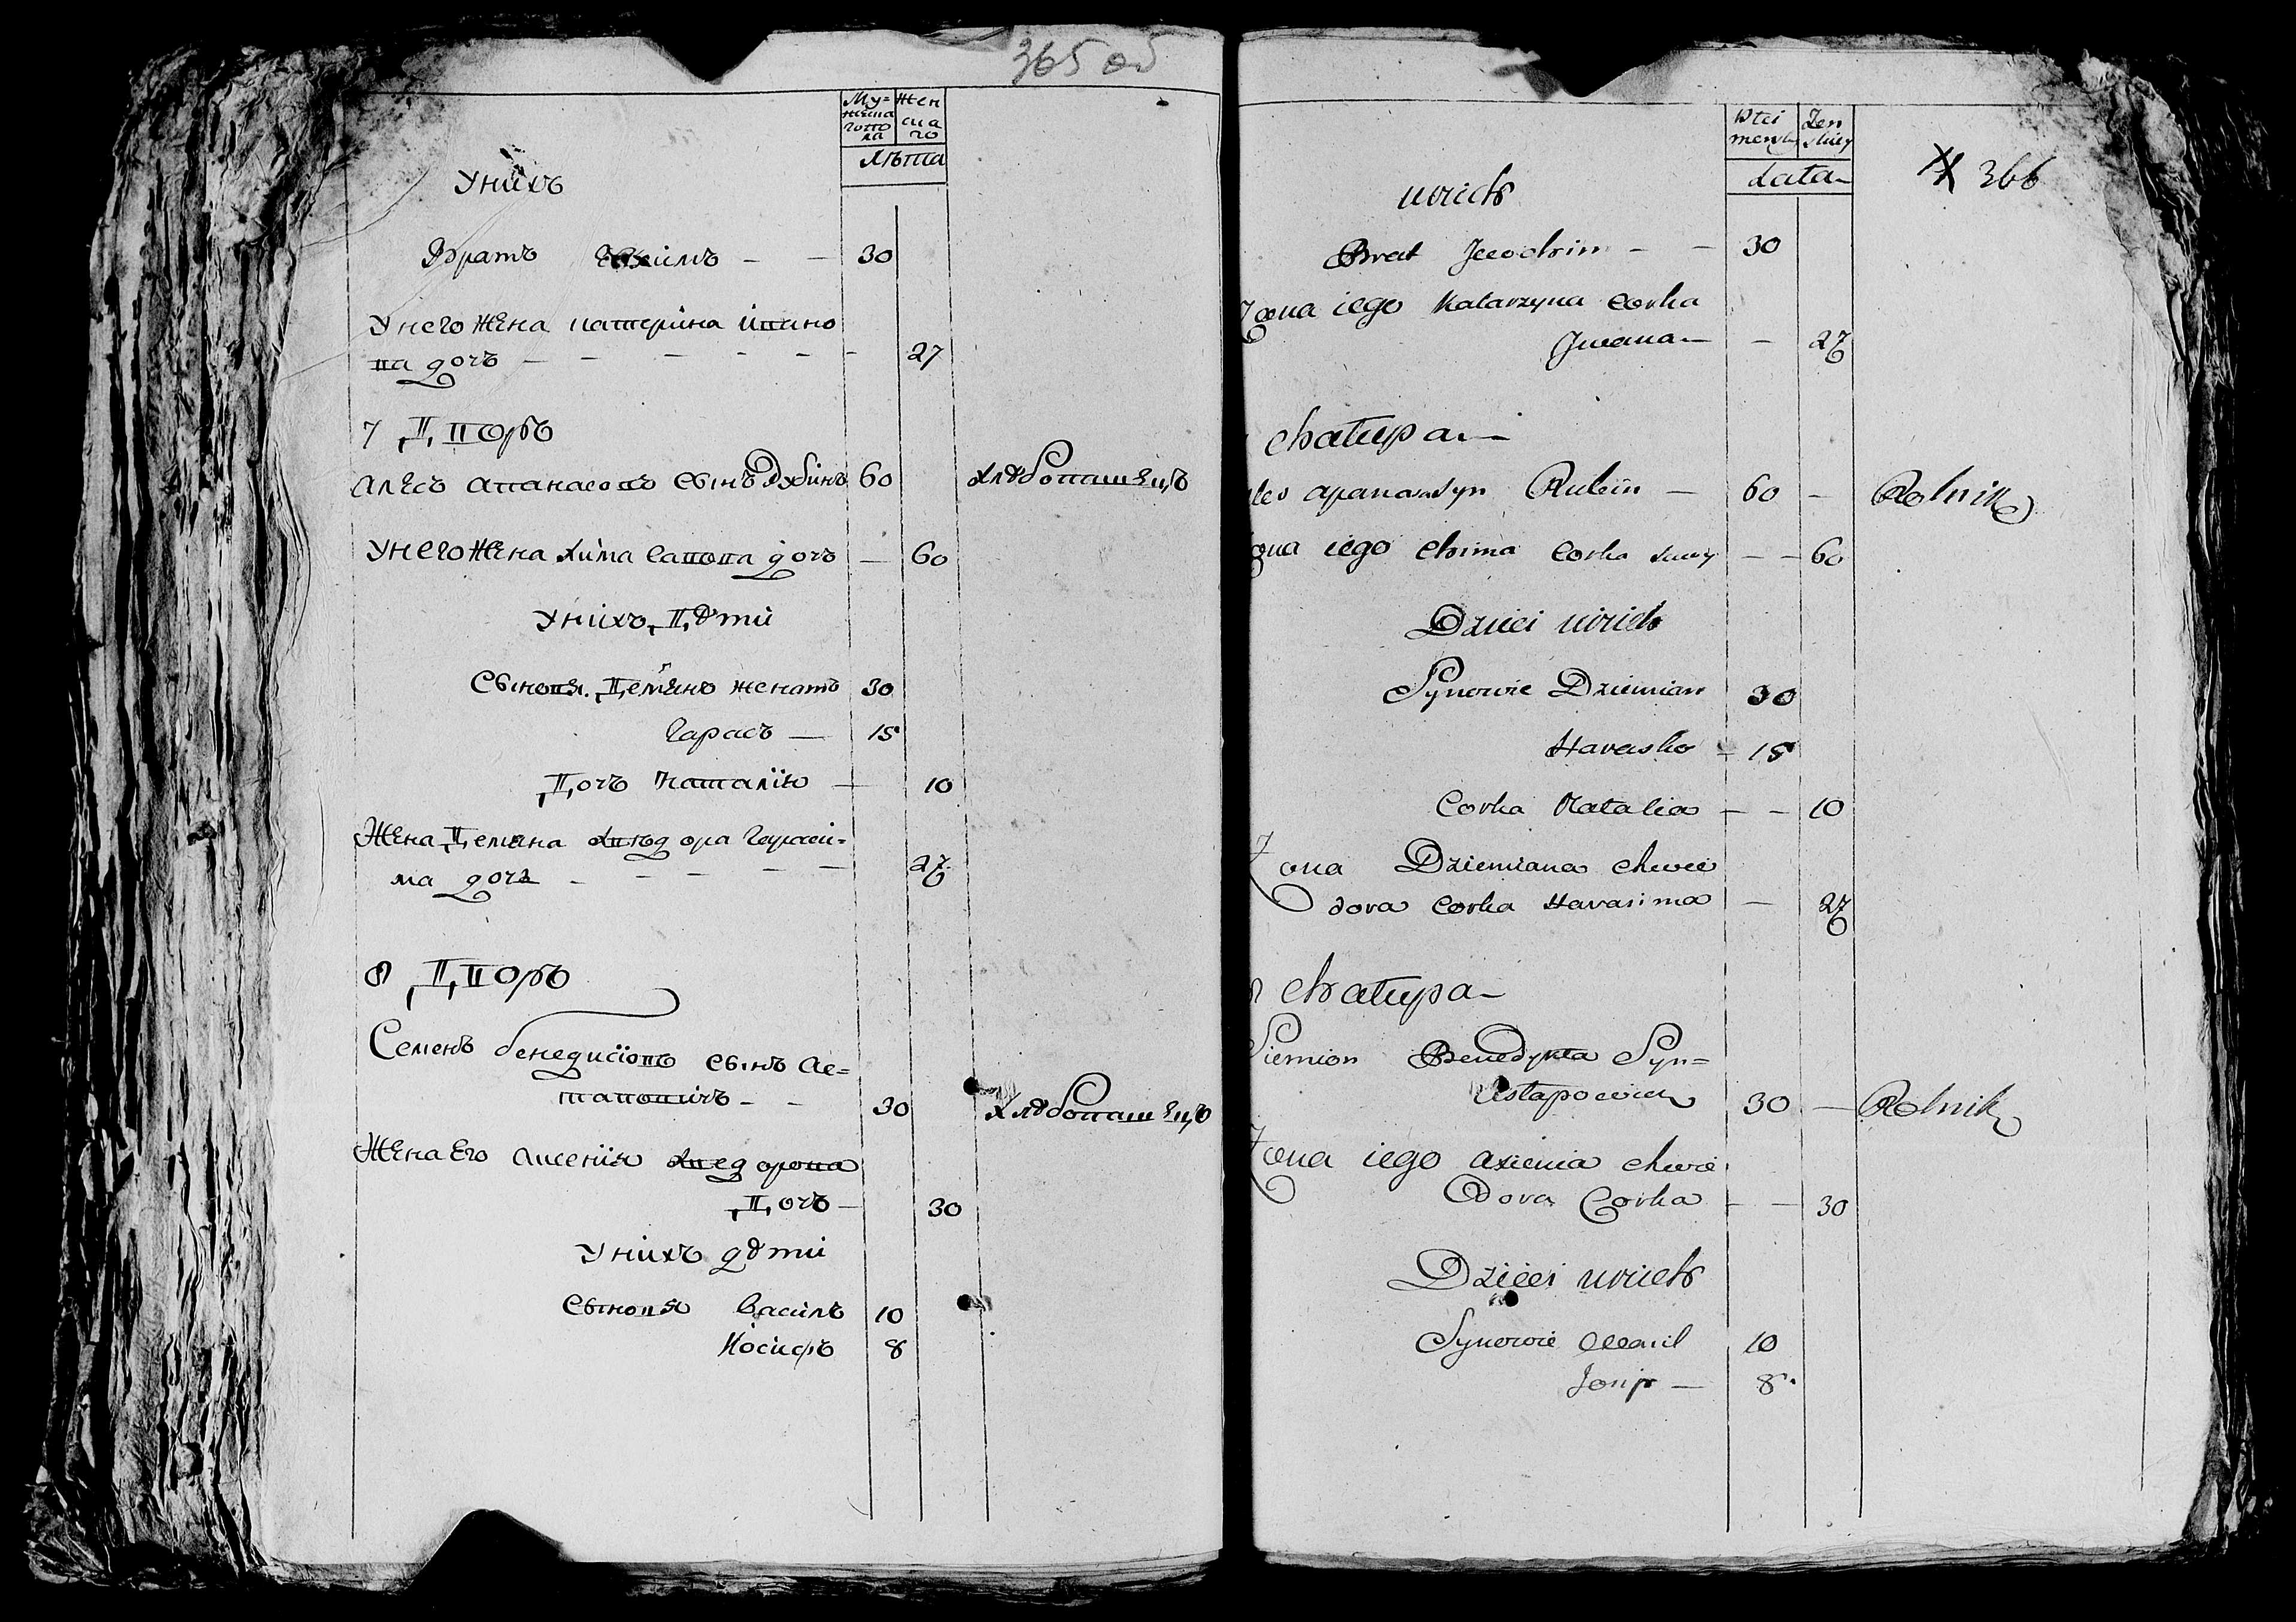 365 об
Му=
жеска
гопо
ла
Жен
ска
го
Лѣта
У нихъ
Братъ 30
У него жена катерина ивано
ва дочь 27
7 Дворъ
Алесь Апанасовъ сынъ 60 хлѣбопашецъ
У него жена хима савова дочь 60
У нихъ Дѣти
Сыновя. Демянъ женатъ 30
Гарасъ 15
Дочь Наталія 10
Жена Демяна хвѣдора Гараси=
ма дочь 27
8 Дворъ
Семенъ бенедиктовъ сынъ Ас=
таповичъ 30 хлѣбопашецъ
Жена Его аксенія хведорова
Дочь 30
У нихъ дѣти
Сыновя Василь 10
Іосифъ 8
Płci
menskiej
Żen
skiey
Lata
366
u nich
Brat 30
Zona iego Katarzyna Corka
Jwana 27
Chatupa
Apanasa Syn Rubin 60 Rolnik
Zona iego Chima Corka 60
Dzieci u nich
Synowie Dziemian 30
Harasko 15
Corka Natalia 10
Zona Dziemiana Chwie
dora Corka Harasima 27
8 Chatupa
Siemion Benedykta Syn=
Astapowicz 30 Rolnik
Zona iego Axienia Chwie
dora Corka 30
Dzieci u nich
Synowie Wasil 10
Josip 8